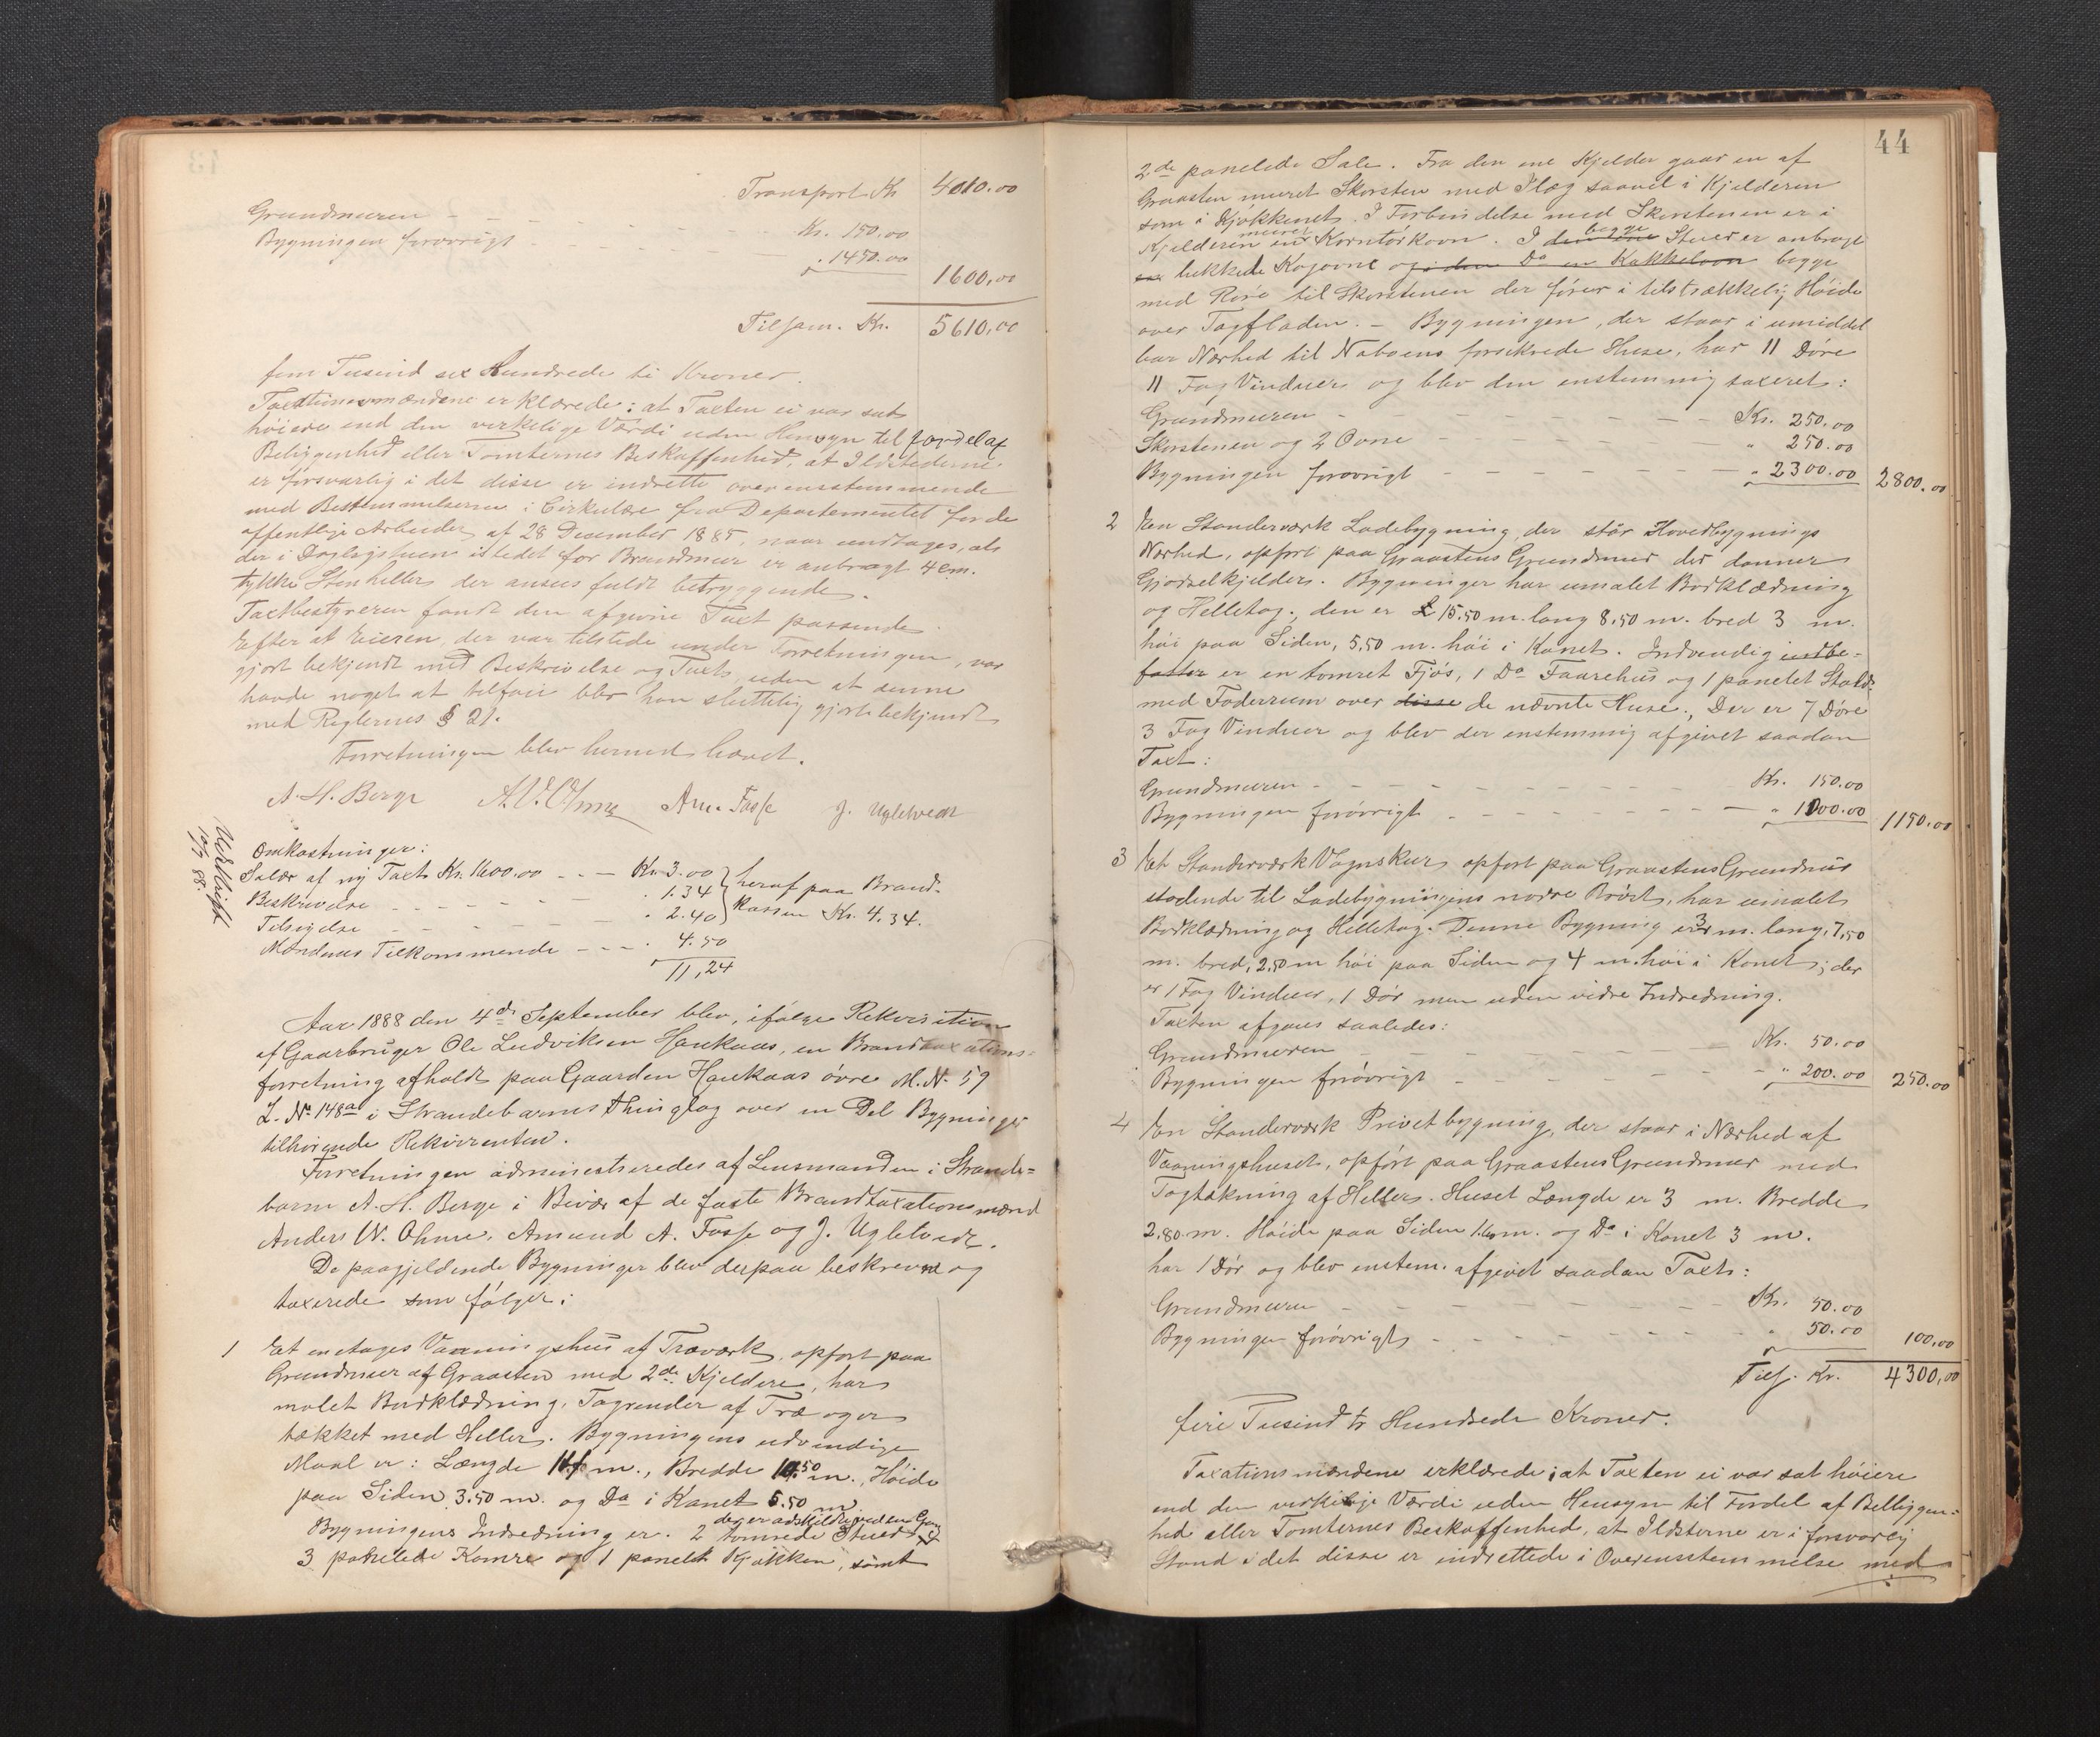 Transport Kr 4010.00
Grundmuren - - - - Kr. 150.00
Bygningen forøvrigt - - - " 1450.00
1600,00
Tilsam. Kr. 5610,00
fem Tusind sex Hundrede ti Kroner.
Taxationsmændene erklærede: at Taxten ei var sat
høiere end den virkelige Værdi uden Hensyn til fordel af
Beliggenhed eller Tomternes Beskaffenhed, at Ildstederne
er forsvarlig i det disse er indrette overensstemmende
med Bestemmelserne i Cirkulære fra Departementet for de
offentlige Arbeider af 28 December 1885, naar undtages, at
der i Daglegstuen istedet for Brandmur er anbragt 4 cm.
tykke Stenheller der ansees fuldt betryggende.
Taxtbestyreren fandt den afgivne Taxt passende.
Efter at Eieren, der var tilstede under Forretningen, var
gjort bekjendt med Beskrivelse og Taxt, uden at denne
havde noget at tilføie blev han sluttelig gjort bekjendt
med Reglernes § 21.
Forretningen blev hermed hævet.
A. H. Berge A. W. Ohme Am. Fosse J. Ugletvedt
Omkostninger:
Salær af ny Taxt Kr. 1600.00 - - - Kr. 3.00
Beskrivelse - - - - - " 1.34
Tilsigelse - - - " 2.40
heraf paa Brand-
kassen Kr. 4.34.
Mændenes Tilkommende - - - " 4.50
11,24
Udskrift
10/9 88.
Aar 1888 den 4de September blev, ifølge Rekvisition
af Gaarbruger Ole Ludviksen Haukaas, en Brandtaxations-
forretning afholdt paa Gaarden Haukaas øvre M. N. 59
L. No 148a i Strandebarms Thinglag over en Del Bygninger
tilhørende Rekvirenten.
Forretningen administreredes af Lensmanden i Strande-
barm A. H. Berge i Bivær af de faste Brandtaxationsmænd
Anders W. Ohme, Amund A. Fosse og J. Ugletvedt.
De paagjeldende Bygninger blev derpaa beskrevne og
taxerede som følger:
1 Et enetages Vaaningshus af Træværk, opført paa
Grundmur af Graasten med 2de Kjeldere, har
malet Bordklædning, Tagrender af Træ og er
tækket med Heller. Bygningens udvendige
Maal er: Længde 11 m., Bredde 10.50 m., Høide
paa Siden 3.50 m. og Do i Kanet 5.50 m.
der er adskildt ved en Gang
Bygningens Indredning er. 2 tømrede Stuer
3 panelede Kamre og 1 panelt Kjøkken, samt
44
2de panelede Sale. Fra den ene Kjelder gaar en af
Graasten muret Skorsten med Ilæg saavel i Kjelderen
som i Kjøkkenet. I Forbindelse med Skorstenen er i
muret begge
Kjelderen en Korntørkovn. I den ene Stuer er anbragt
lukkede Kogovne og i den Do en Kakkelovn begge
med Røre til Skorstenen der fører i tilstrækkelig Høide
over Tagfladen. - Bygningen, der staar i umiddel
bar Nærhed til Naboens forsikrede Huse, har 11 Døre
11 Fag Vinduer og blev den enstemmig taxeret:
Grundmuren - - - - Kr. 250.00
Skorstenen og 2 Ovne - - - " 250.00
Bygningen forøvrigt - - - " 2300.00 2800.00
2 En Stenderværk Ladebygning, der står Hovedbygnings
Nærhed, opført paa Graastens Grundmur der danner
Gjødselkjelder. Bygninger har umalet Bordklædning
og Helletag, den er 15.50 m. lang 8.50 m. bred 3 m.
høi paa Siden, 5.50 m. høi i Kanet. Indvendig indbe-
fatter er en tømret Fjøs, 1 Do Faarehus og 1 panelet Stald
med Foderrum over disse de nævnte Huse. Der er 7 Døre
3 Fag Vinduer og blev der enstemmig afgivet saadan
Taxt:
Grundmuren - - - - Kr. 150.00
Bygningen forøvrigt - - - " 1000.00 1150.00
3 Et Stenderværk Vognskur opført paa Graastens Grundmur
stødende til Ladebygningens nordre Brøst, har umalet
Bordklædning og Helletag. Denne Bygning er 3 m. lang, 7,50
m. bred, 2,50 m høi paa Siden og 4 m. høi i Kanet, der
er 1 Fag Vinduer, 1 Dør men uden vidre Indredning.
Taxten afgaves saaledes:
Grundmuren - - - - Kr. 50.00
Bygningen forøvrigt - - - " 200.00 250.00
4 En Stenderværk Privetbygning, der staar i Nærhed af
Vaaningshuset, opført paa Graastens Grundmur med
Tagtækning af Heller. Huset Længde er 3 m. Bredde
2.80 m. Høide paa Siden 1.60 m. og Do i Kanet 3 m.
har 1 Dør og blev enstem. afgivet saadan Taxt:
Grundmuren - - - - Kr. 50.00
Bygningen forøvrigt - - - " 50.00 100,00
Tils. Kr. 4300,00
fire Tusind tr Hundrede Kroner.
Taxationsmændene erklærede: at Taxten ei var sat høiere
end den virkelige Værdi uden Hensyn til Fordel af Belliggen-
hed eller Tomternes Beskaffenhed, at Ildsterne er i forsvarlig
Stand idet disse er indrettede i Overensstemmelse med